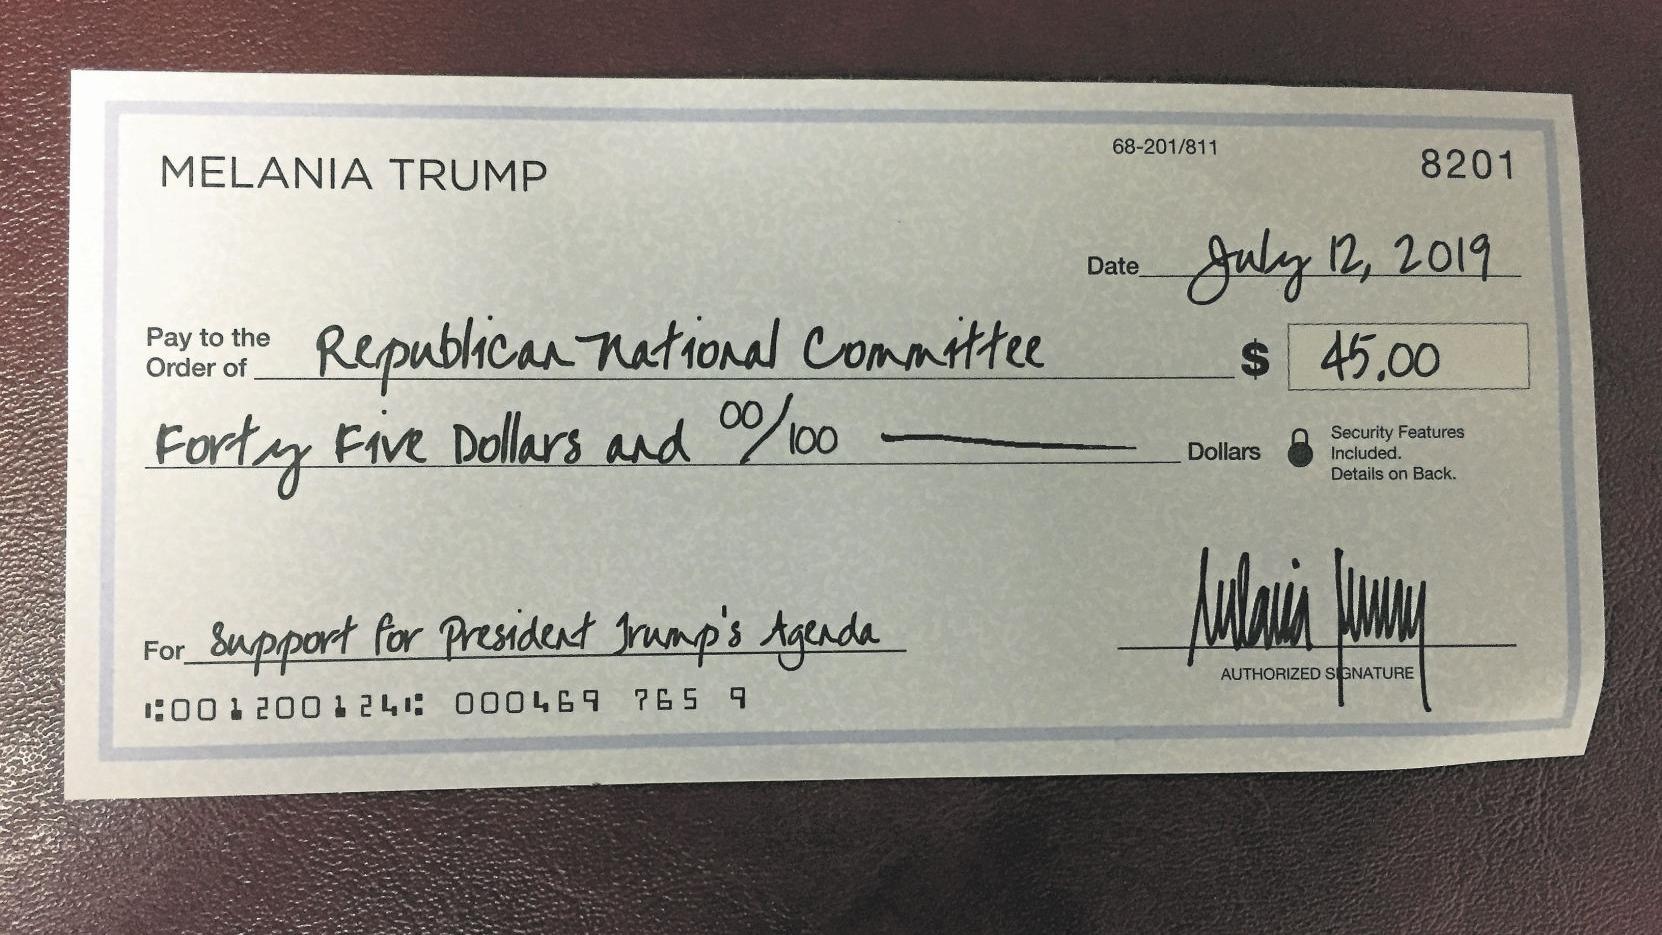 MELANIA TRUMP
68-201/811
8201
Date July 12, 2019
Pay to the
Order of Republican National Committee $ 45.00
Forty Five Dollars and 00/100 Dollars
Security Features
Included.
Details on Back.
For Support for President Trump's Agenda
Melania Trump
AUTHORIZED SIGNATURE
⑆001200124⑆ 000469 765 9